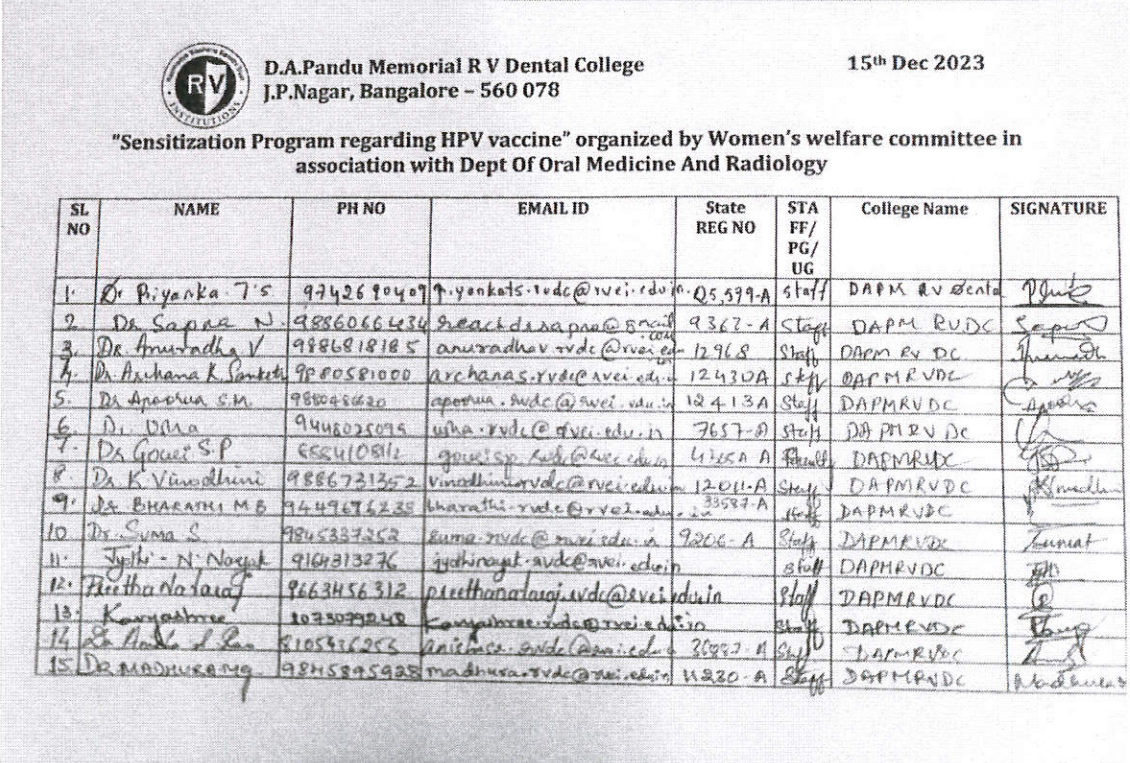 RV
INSTITUTIONS
D.A.Pandu Memorial R V Dental College
15th Dec 2023
J.P.Nagar, Bangalore – 560 078
"Sensitization Program regarding HPV vaccine" organized by Women's welfare committee in
association with Dept Of Oral Medicine And Radiology
SL NO NAME PH NO EMAIL ID State REG NO STA FF/ PG/ UG College Name SIGNATURE
1. Dr Priyanka T S 9742690409 staff DAPM RV Dental
2. Dr Sapna N. 9886066434 reachdrsapna@gmail.com 9362-A Staff DAPM RVDC
3. Dr. Anuradha V 9886818185 anuradhav.rvdc@rvei.edu 12968 Staff DAPM RV DC
4. Dr. Archana K Sanketh 9880581000 archanas.rvdc@rvei.edu.i 12430A staff DAPMRVDC
5. Dr Apoorva S.M apoorva.rvdc@rvei.edu.in 12413A Staff DAPMRVDC Apoorva
6. Dr. Usha 9448025095 usha.rvdc@rvei.edu.in 7657-A staff DAPMRVDC
7. Dr Gowri S.P gowrisp.rvdc@rvei.edu.in Faculty DAPMRVDC
8. Dr K Vinodhini 9886731352 12011-A Staff DAPMRVDC
9. Dr BHARATHI M B 9449676235 bharathi.rvdc@rvei.edu.in 33587-A staff DAPMRVDC
10 Dr. Suma S 9845337252 suma.rvdc@rvei.edu.in 9206-A Staff DAPMRVDC
11. Jyothi - N. Nayak 9164313276 jyothinayak.rvdc@rvei.edu.in staff DAPMRVDC
12. Preetha Nataraj 9663456312 preethanataraj.rvdc@rvei.edu.in Staff DAPMRVDC
13. Kavyashree kavyashree.rvdc@rvei.edu.in Staff DAPMRVDC
14 Dr 8105436253 Staff DAPMRVDC
15. DR MADHURA MG 9845895928 madhura.rvdc@rvei.edu.in 11230-A Staff DAPMRVDC